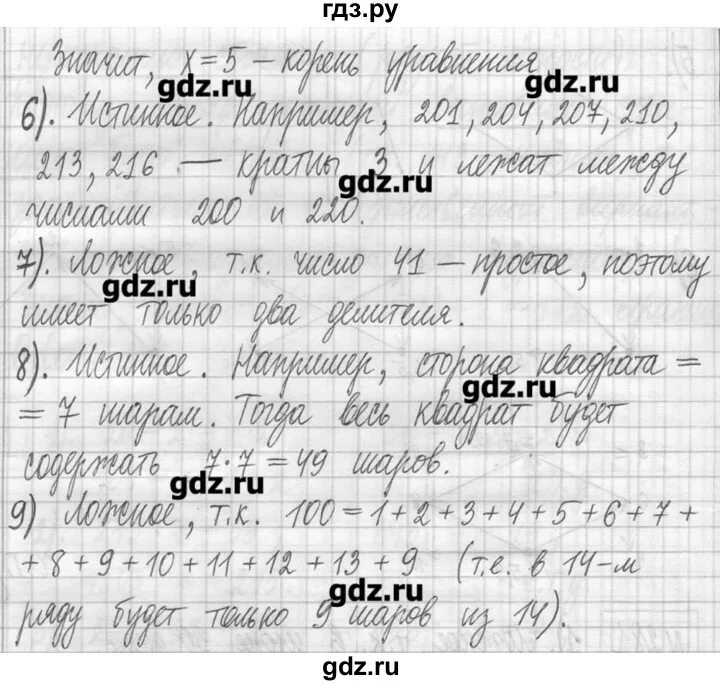 гдз.ру
Значит, x=5 – корень уравнения
gdz.ru gdz.ru
6). Истинное. Например, 201, 204, 207, 210,
213, 216 — кратны 3 и лежат между
gdz.ru
числами 200 и 220.
7). Ложное, т.к. число 41 – простое, поэтому
gdz.ru
имеет только два делителя.
8). Истинное. Например, сторона квадрата =
gdz.ru
= 7 шарам. Тогда весь квадрат будет
содержать 7·7 = 49 шаров.
gdz.ru
9) Ложное, т.к. 100 = 1+2+3+4+5+6+7+
+8+9+10+11+12+13+9 (т.е. в 14-м
gdz.ru
ряду будет только 9 шаров из 14).
gdz.ru